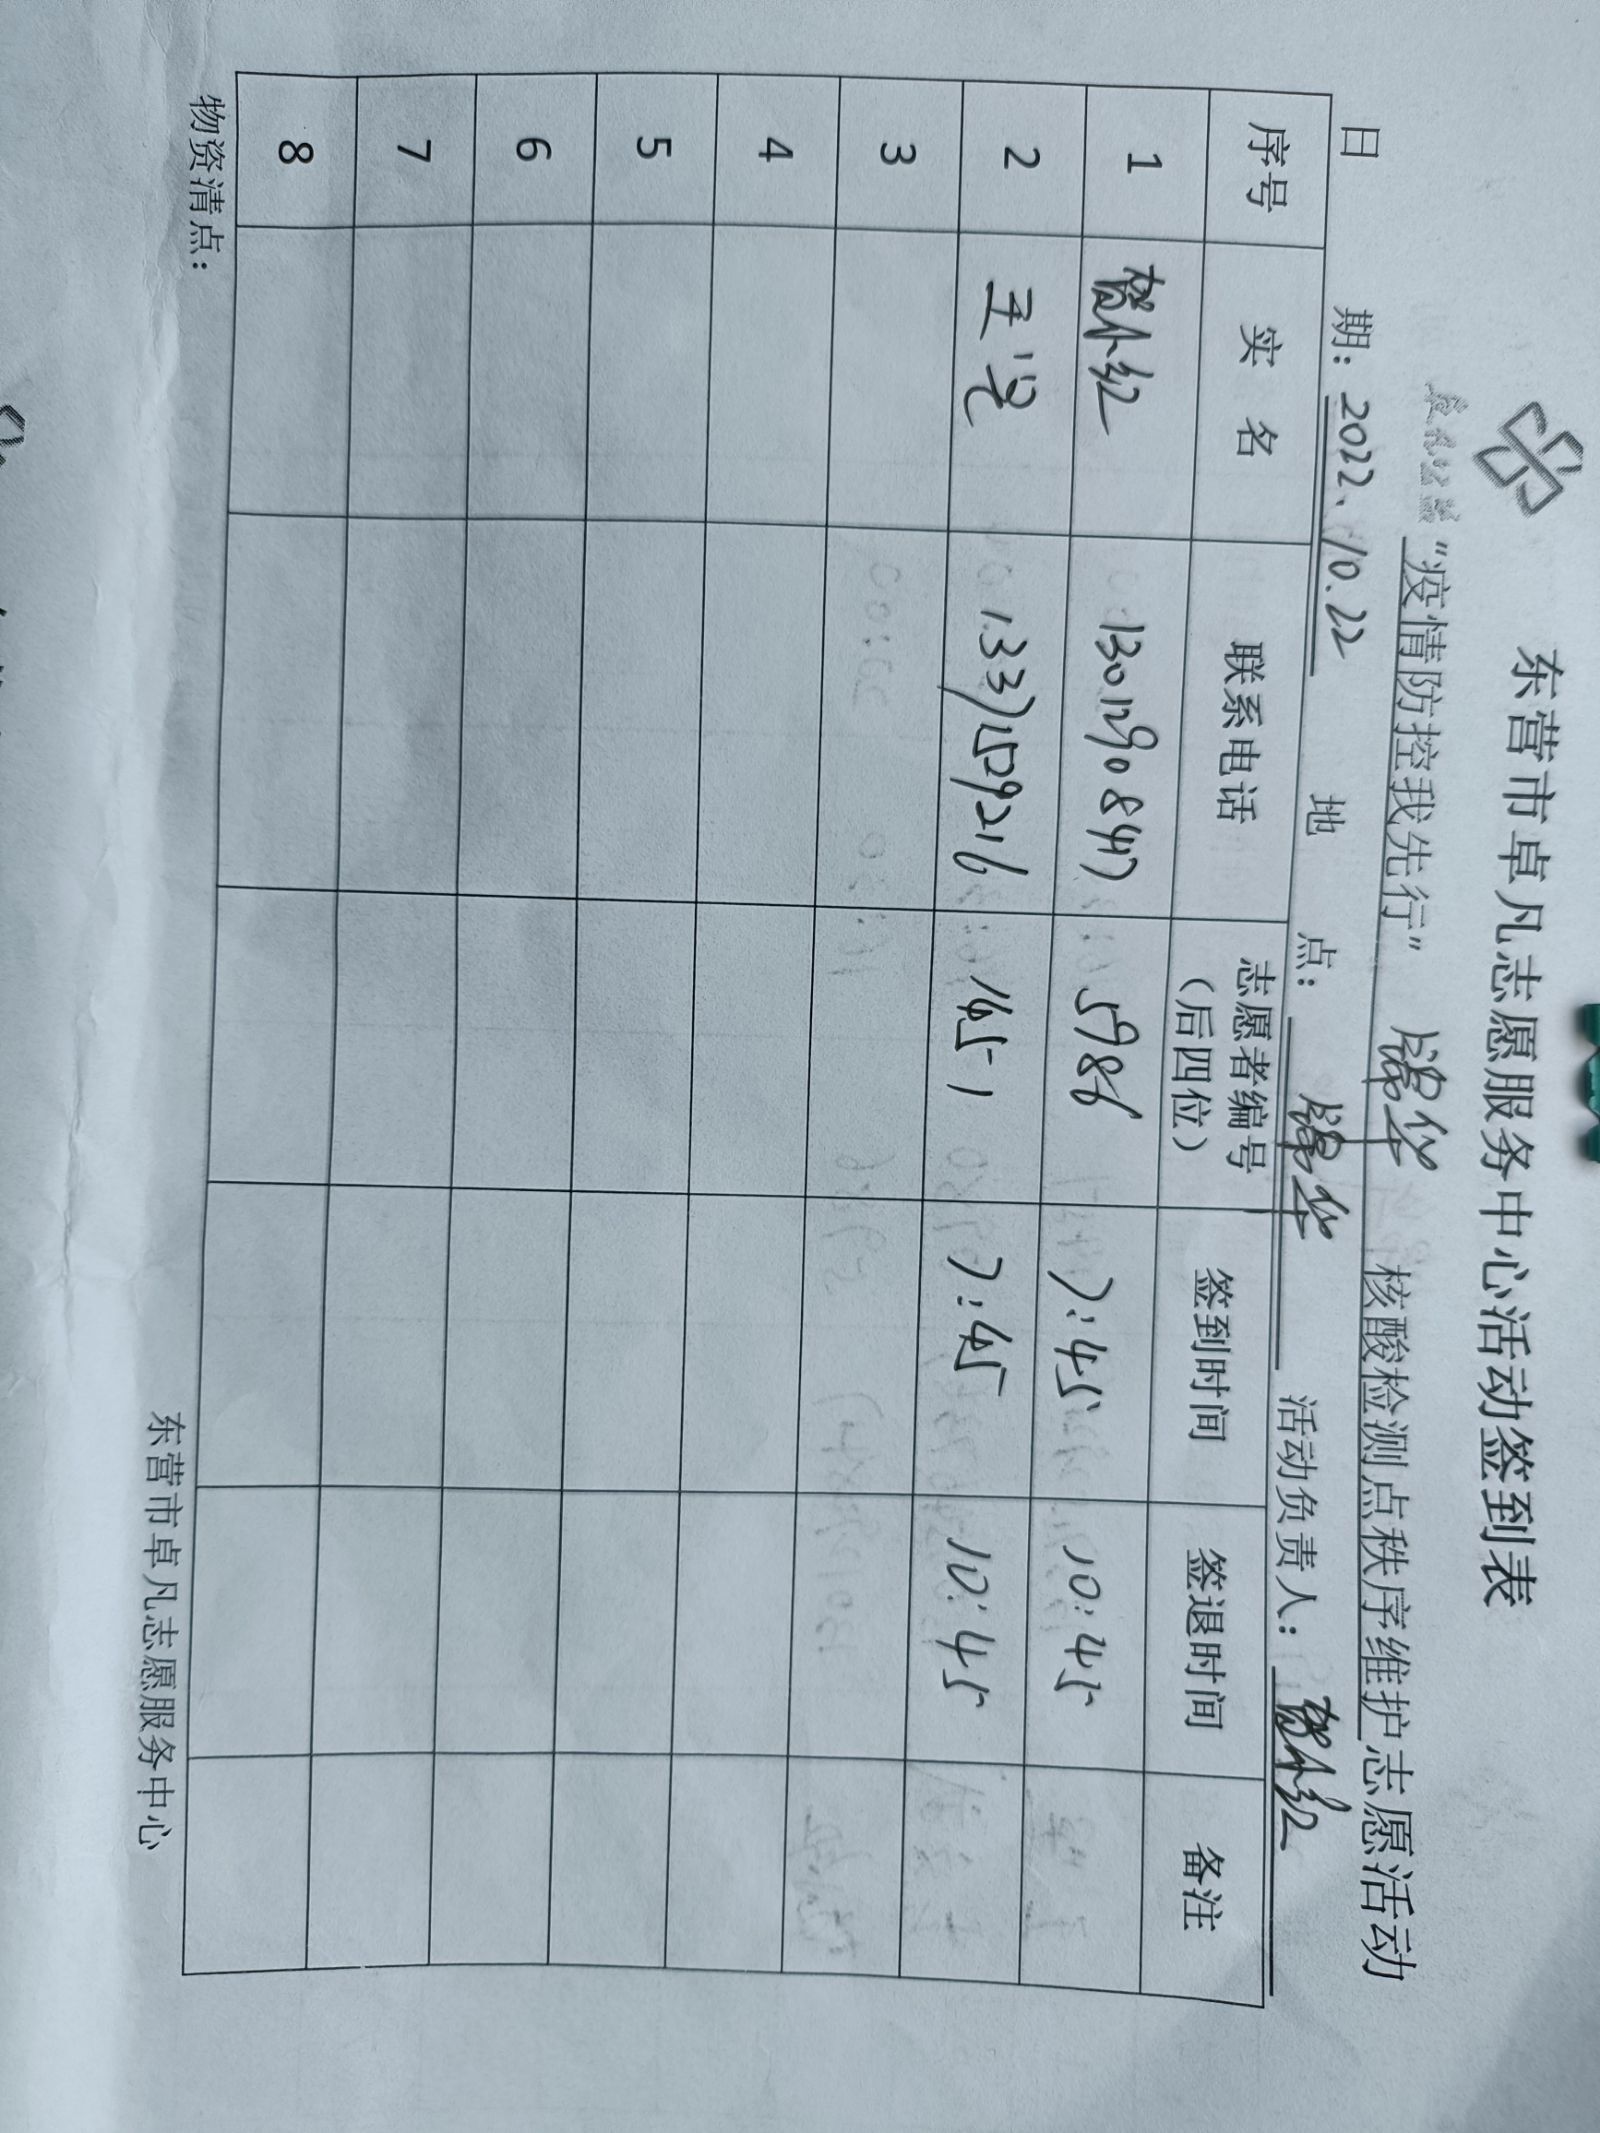 东营市卓凡志愿服务中心活动签到表
“疫情防控我先行” 锦华 核酸检测点秩序维护志愿活动
日 期：2022、10.22 地 点：锦华 活动负责人：贺小红
序号 实 名 联系电话 志愿者编号（后四位） 签到时间 签退时间 备注
1 贺小红 13012908417 5986 7:45 10:45
2 王 13371529216 1651 7:45 10:45
3
4
5
6
7
8
物资清点：
东营市卓凡志愿服务中心